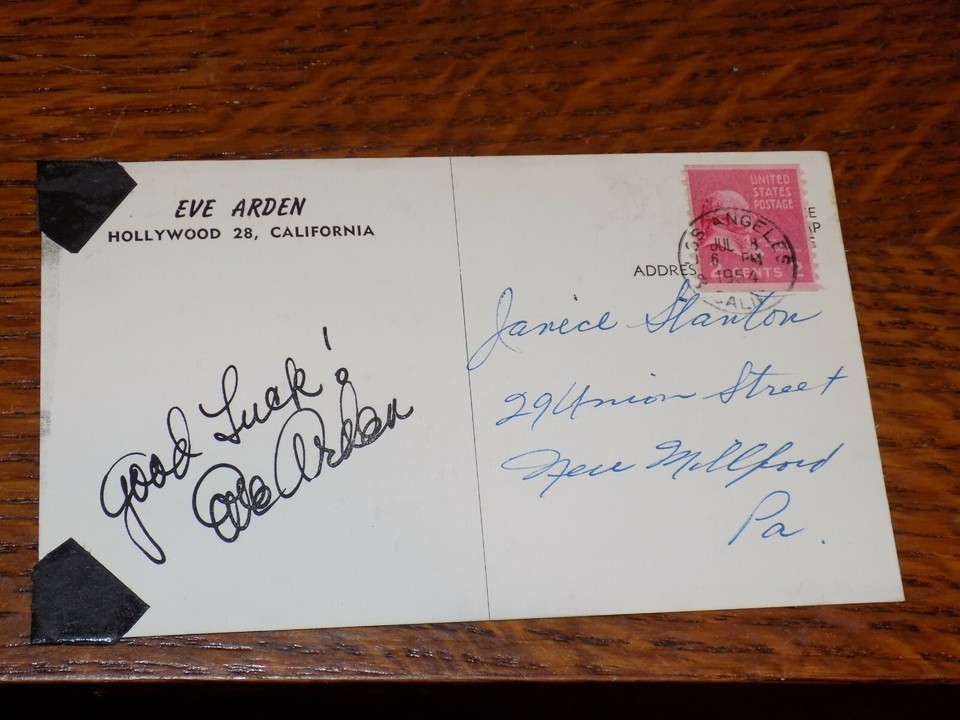 EVE ARDEN
HOLLYWOOD 28, CALIFORNIA
Good Luck!
Eve Arden
UNITED
STATES
POSTAGE
2 CENTS 2
LOS ANGELES
JUL 8
6 PM
1954
CALIF
ADDRES
Janice Stanton
29 Union Street
New Millford
Pa.